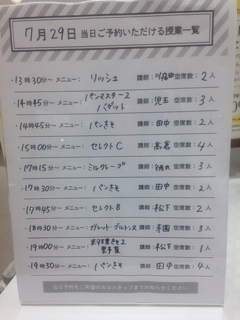 7月29日 当日ご予約いただける授業一覧
・13時30分〜 メニュー： リッシュ 講師： 空席数： 2人
・14時45分〜 メニュー： パンマスター2 バゲット 講師：児玉 空席数： 3人
・14時45分〜 メニュー： パンきそ 講師：田中 空席数： 2人
・15時00分〜 メニュー： セレクトC 講師：高尾 空席数： 4人
・17時15分〜 メニュー： ミルクレープ 講師： 空席数： 3人
・17時30分〜 メニュー： パンきそ 講師：田中 空席数： 2人
・17時45分〜 メニュー： セレクトB 講師：松下 空席数： 2人
・18時30分〜 メニュー： ガレット・ブルトンヌ 講師： 空席数： 3人
・19時00分〜 メニュー： 講師：松下 空席数： 1人
・19時30分〜 メニュー： パンきそ 講師：田中 空席数： 4人
当日予約をご希望の方はスタッフまでお知らせください